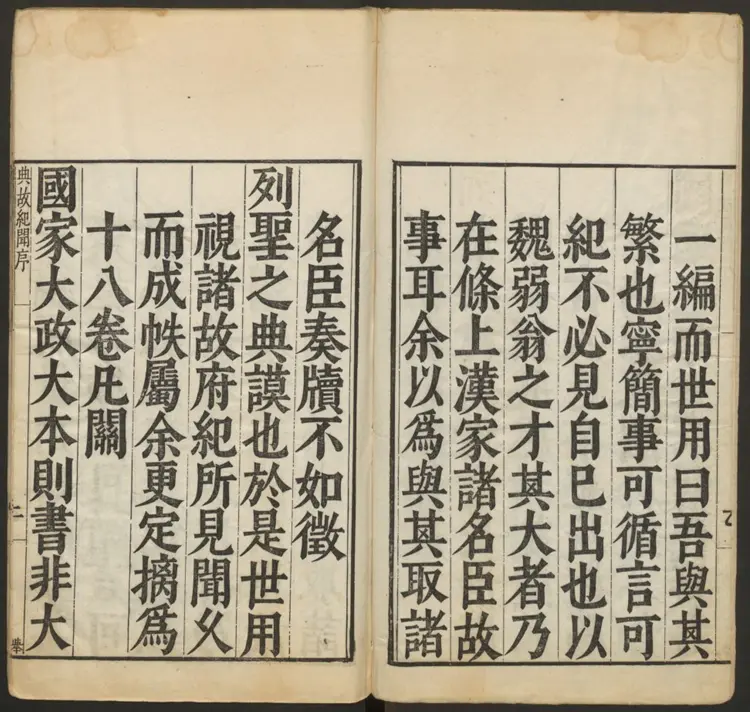 一編而世用曰吾與其
繁也寧簡事可循言可
紀不必見自已出也以
魏弱翁之才其大者乃
在條上漢家諸名臣故
事耳余以為與其取諸
名臣奏牘不如徵
列聖之典謨也於是世用
視諸故府紀所見聞久
而成帙屬余更定摘為
十八卷凡關
國家大政大本則書非大
典故紀聞序